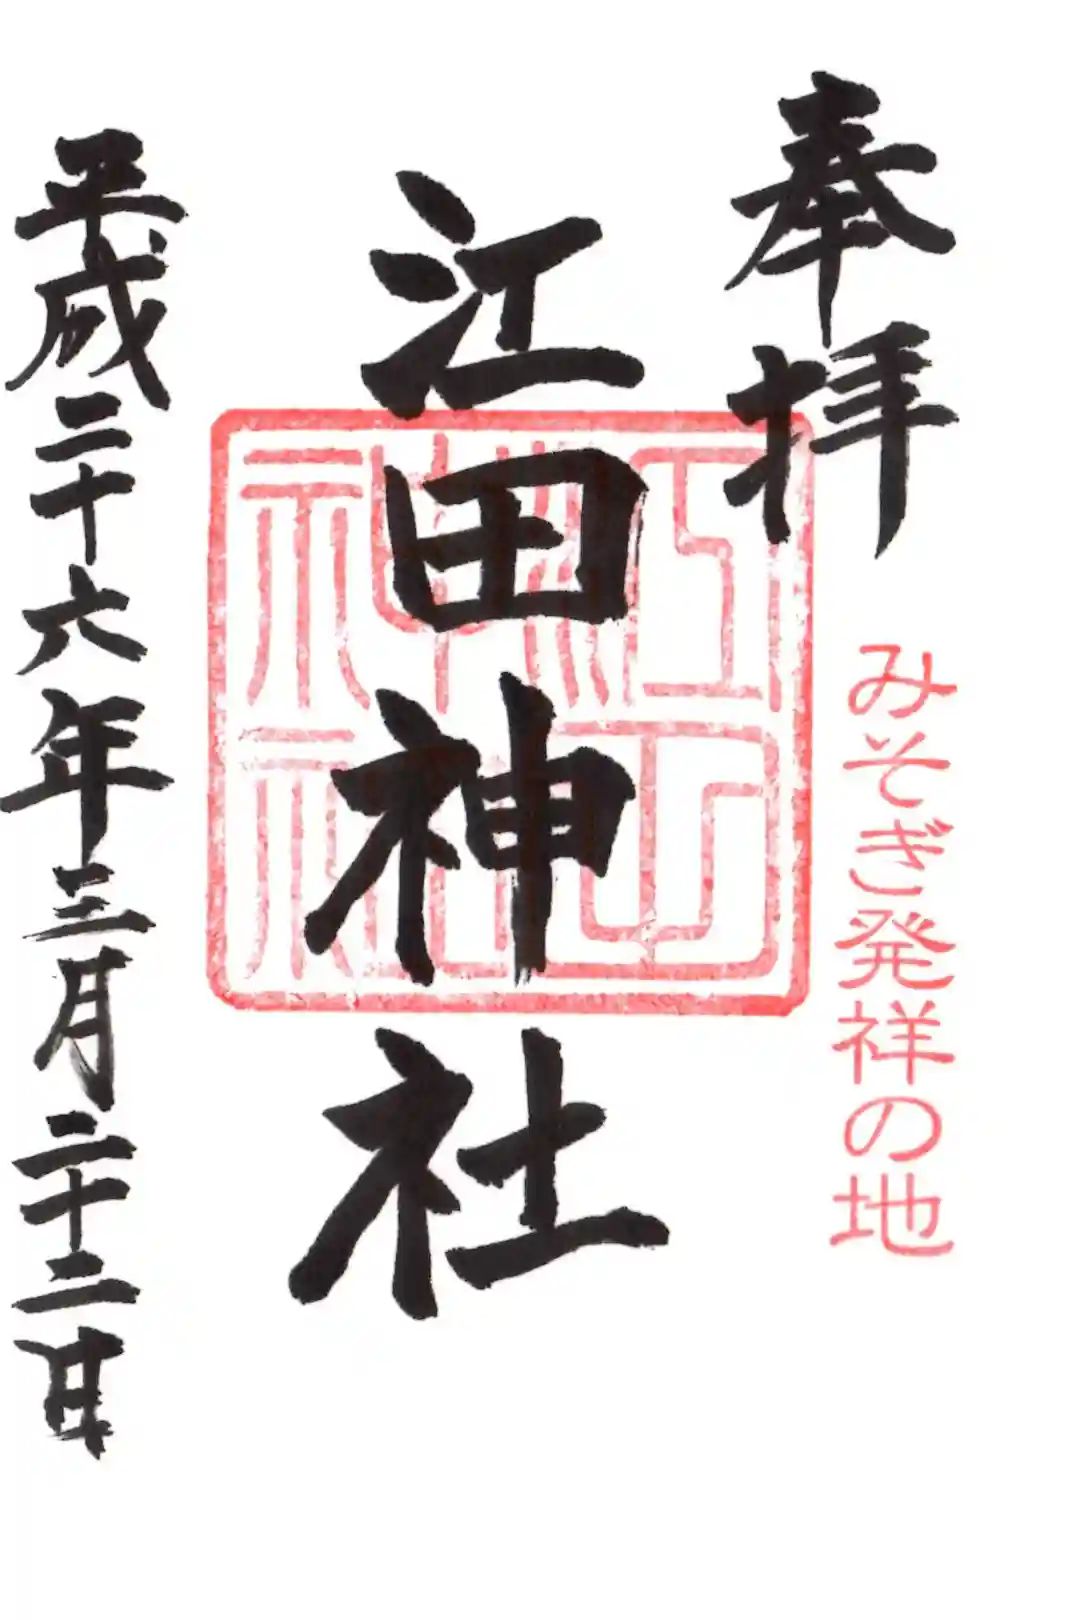 奉拝
みそぎ発祥の地
江田神社
平成二十六年三月二十二日